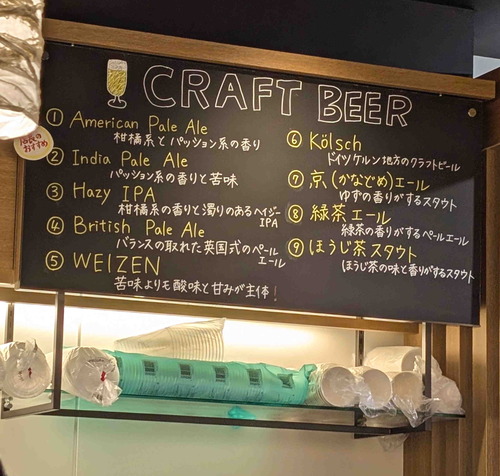 CRAFT BEER
店長の
おすすめ
① American Pale Ale
柑橘系とパッション系の香り
② India Pale Ale
パッション系の香りと苦味
③ Hazy IPA
柑橘系の香りと濁りのあるヘイジー
IPA
④ British Pale Ale
バランスの取れた英国式のペール
エール
⑤ WEIZEN
苦味よりも酸味と甘みが主体!
⑥ Kölsch
ドイツケルン地方のクラフトビール
⑦ 京(かなどめ)エール
ゆずの香りがするスタウト
⑧ 緑茶エール
緑茶の香りがするペールエール
⑨ ほうじ茶スタウト
ほうじ茶の味と香りがするスタウト